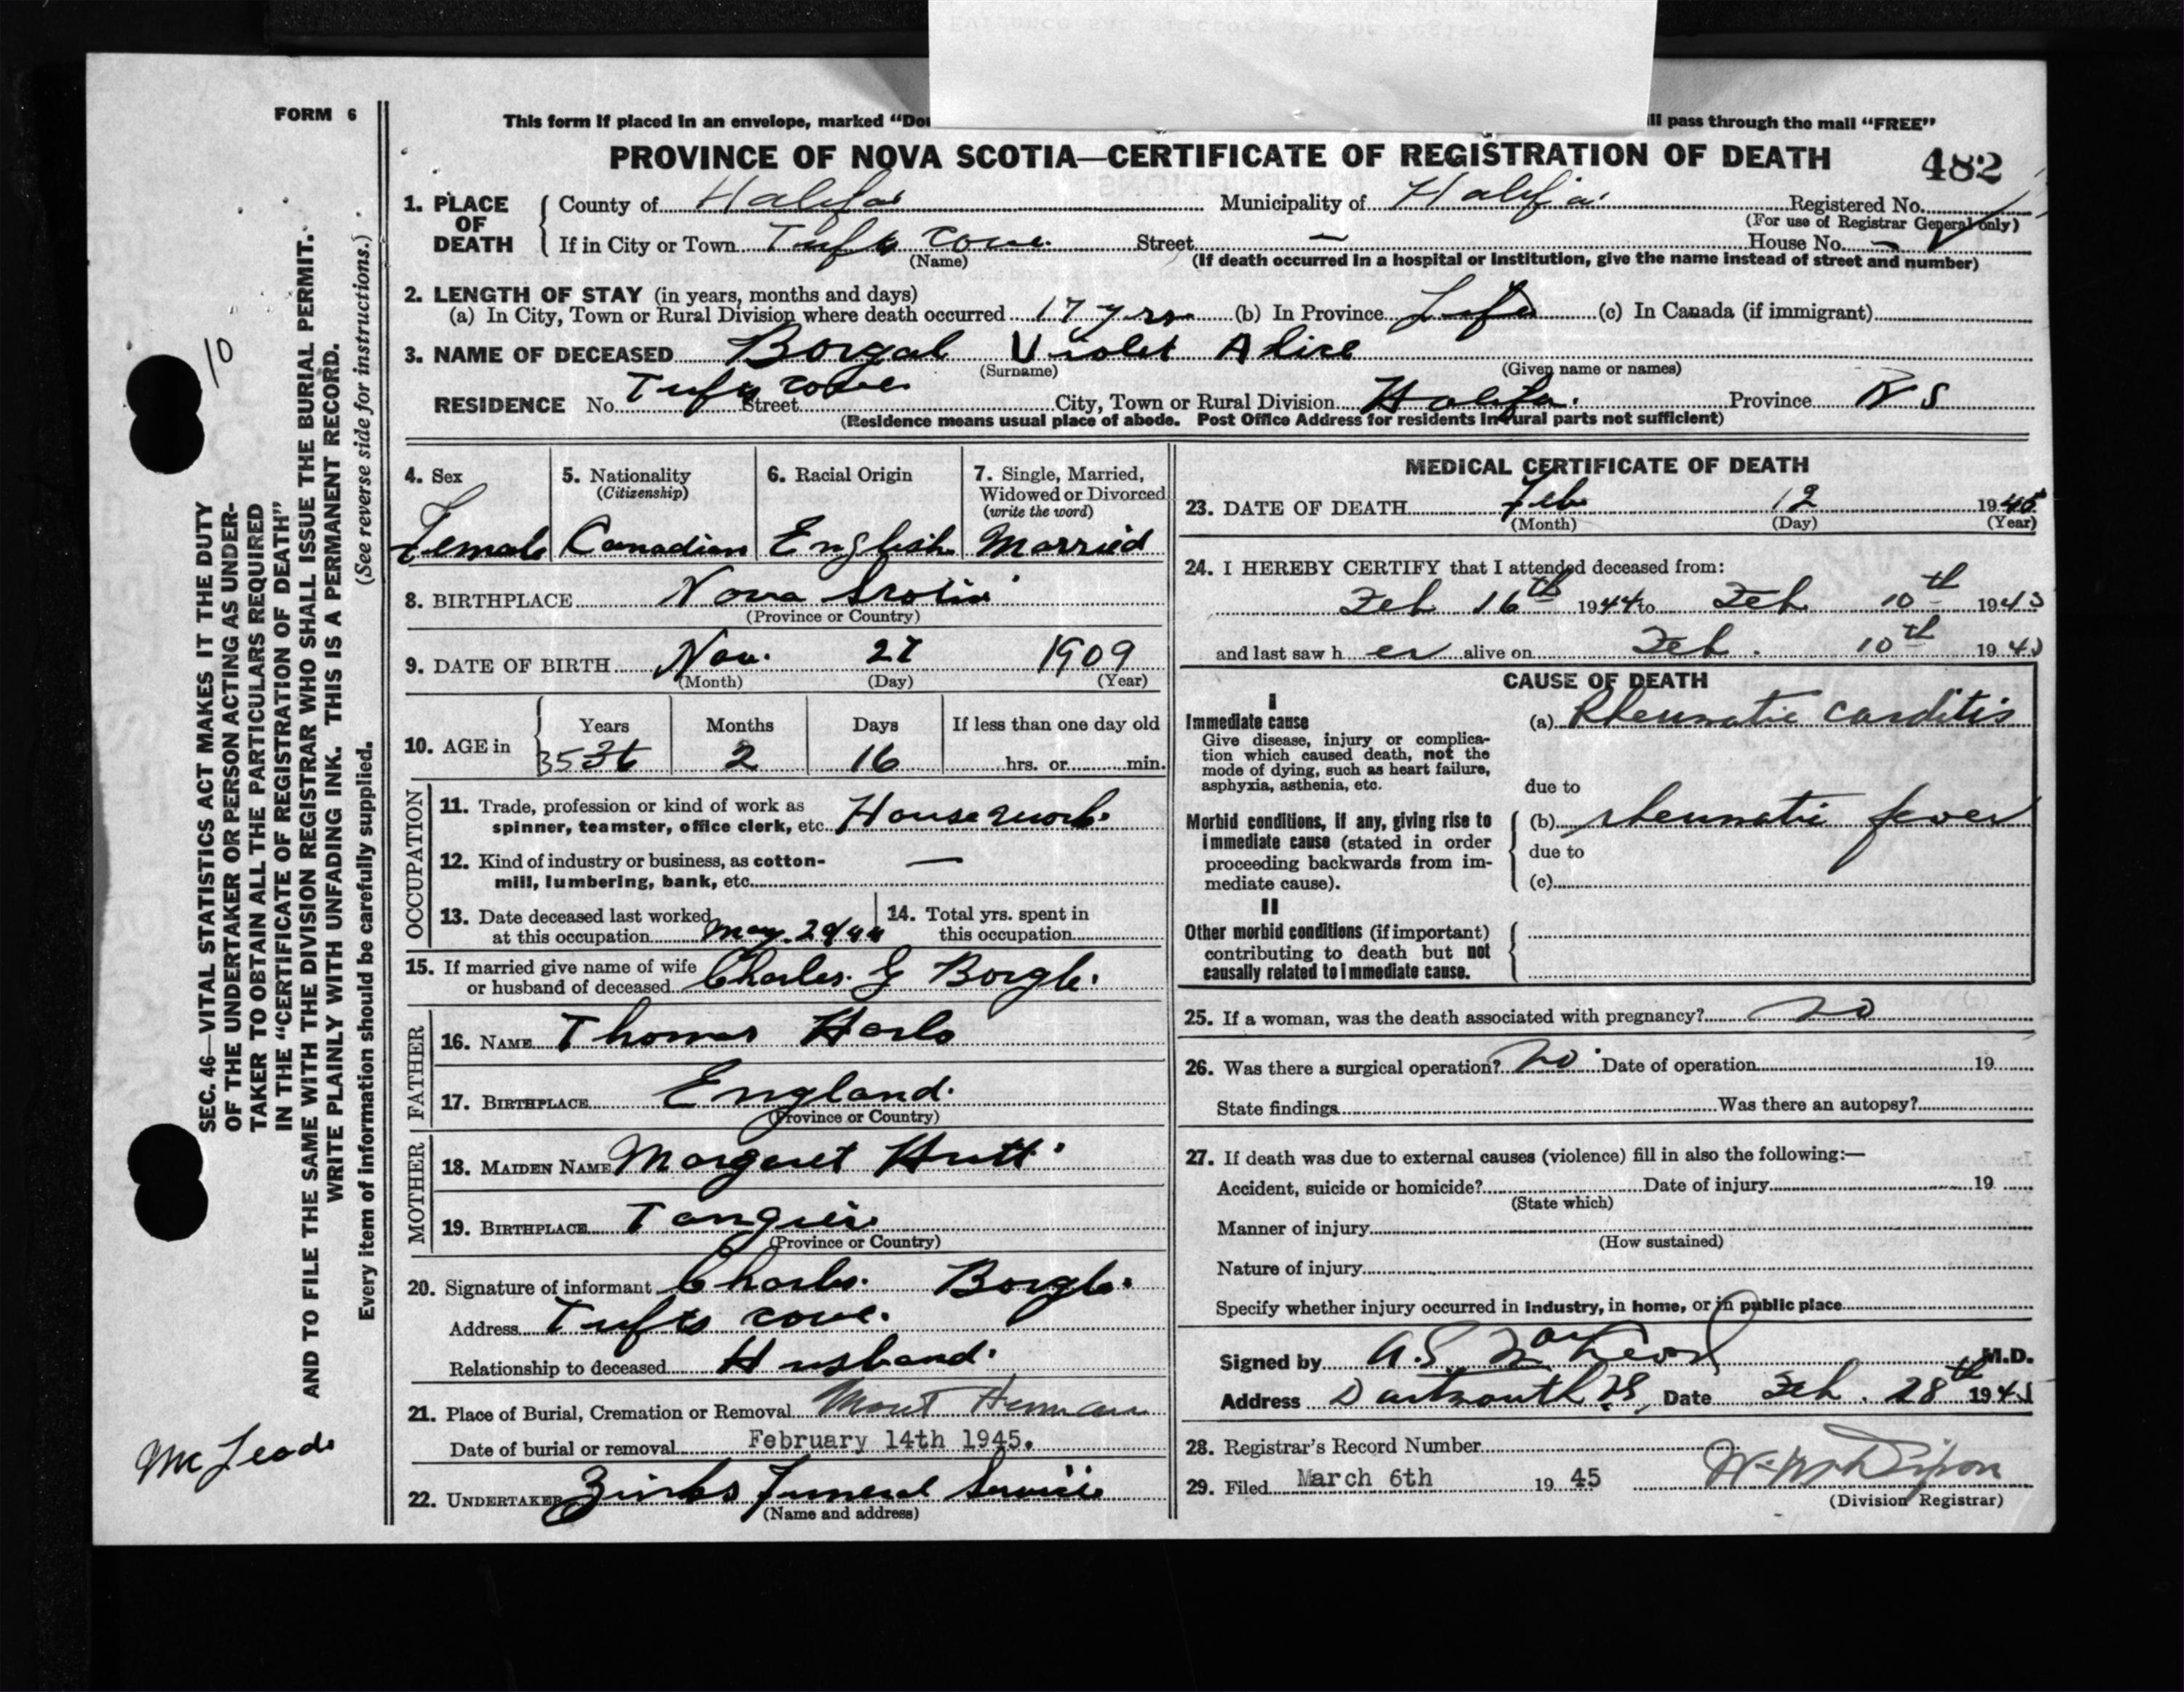 FORM 6
This form if placed in an envelope, marked "Do
ll pass through the mail "FREE"
PROVINCE OF NOVA SCOTIA—CERTIFICATE OF REGISTRATION OF DEATH 482
1. PLACE OF DEATH
County of Halifax Municipality of Halifax Registered No.
(For use of Registrar General only)
If in City or Town Tufts Cove Street — House No. —
(Name)
(If death occurred in a hospital or institution, give the name instead of street and number)
2. LENGTH OF STAY (in years, months and days)
(a) In City, Town or Rural Division where death occurred 17 yrs (b) In Province Life (c) In Canada (if immigrant)
3. NAME OF DECEASED Borgal Violet Alice
(Surname) (Given name or names)
RESIDENCE No. Tufts Cove Street City, Town or Rural Division Halifax Province N S
(Residence means usual place of abode. Post Office Address for residents in rural parts not sufficient)
4. Sex
Female
5. Nationality
(Citizenship)
Canadian
6. Racial Origin
English
7. Single, Married,
Widowed or Divorced
(write the word)
Married
8. BIRTHPLACE Nova Scotia
(Province or Country)
9. DATE OF BIRTH Nov. 27 1909
(Month) (Day) (Year)
10. AGE in
Years Months Days If less than one day old
35 36 2 16 hrs. or min.
OCCUPATION
11. Trade, profession or kind of work as
spinner, teamster, office clerk, etc. Housework.
12. Kind of industry or business, as cotton-
mill, lumbering, bank, etc. —
13. Date deceased last worked
at this occupation May
14. Total yrs. spent in
this occupation
15. If married give name of wife
or husband of deceased Charles. G Borgle.
FATHER
16. NAME Thomas
17. BIRTHPLACE England.
(Province or Country)
MOTHER
18. MAIDEN NAME Margaret Hutt
19. BIRTHPLACE Tangier
(Province or Country)
20. Signature of informant Charles. Borgle.
Address Tufts Cove.
Relationship to deceased Husband.
21. Place of Burial, Cremation or Removal Mount Herman
Date of burial or removal February 14th 1945.
22. UNDERTAKER Zinks Funeral Service
(Name and address)
MEDICAL CERTIFICATE OF DEATH
23. DATE OF DEATH Feb 12 1945
(Month) (Day) (Year)
24. I HEREBY CERTIFY that I attended deceased from:
Feb 16th 1944 to Feb 10th 1945
and last saw h er alive on Feb. 10th 1945
CAUSE OF DEATH
I
Immediate cause
Give disease, injury or complica-
tion which caused death, not the
mode of dying, such as heart failure,
asphyxia, asthenia, etc.
(a) Rheumatic carditis
due to
Morbid conditions, if any, giving rise to
immediate cause (stated in order
proceeding backwards from im-
mediate cause).
(b) rheumatic fever
due to
(c)
II
Other morbid conditions (if important)
contributing to death but not
causally related to immediate cause.
25. If a woman, was the death associated with pregnancy? no
26. Was there a surgical operation? no. Date of operation 19
State findings Was there an autopsy?
27. If death was due to external causes (violence) fill in also the following:—
Accident, suicide or homicide? Date of injury 19
(State which)
Manner of injury
(How sustained)
Nature of injury
Specify whether injury occurred in industry, in home, or in public place
Signed by A.S. MacLeod M.D.
Address Dartmouth N.S. Date Feb. 28th 1945
28. Registrar's Record Number
29. Filed March 6th 19 45
(Division Registrar)
SEC. 46—VITAL STATISTICS ACT MAKES IT THE DUTY
OF THE UNDERTAKER OR PERSON ACTING AS UNDER-
TAKER TO OBTAIN ALL THE PARTICULARS REQUIRED
IN THE "CERTIFICATE OF REGISTRATION OF DEATH"
AND TO FILE THE SAME WITH THE DIVISION REGISTRAR WHO SHALL ISSUE THE BURIAL PERMIT.
WRITE PLAINLY WITH UNFADING INK. THIS IS A PERMANENT RECORD.
Every item of information should be carefully supplied. (See reverse side for instructions.)
10
McLeod